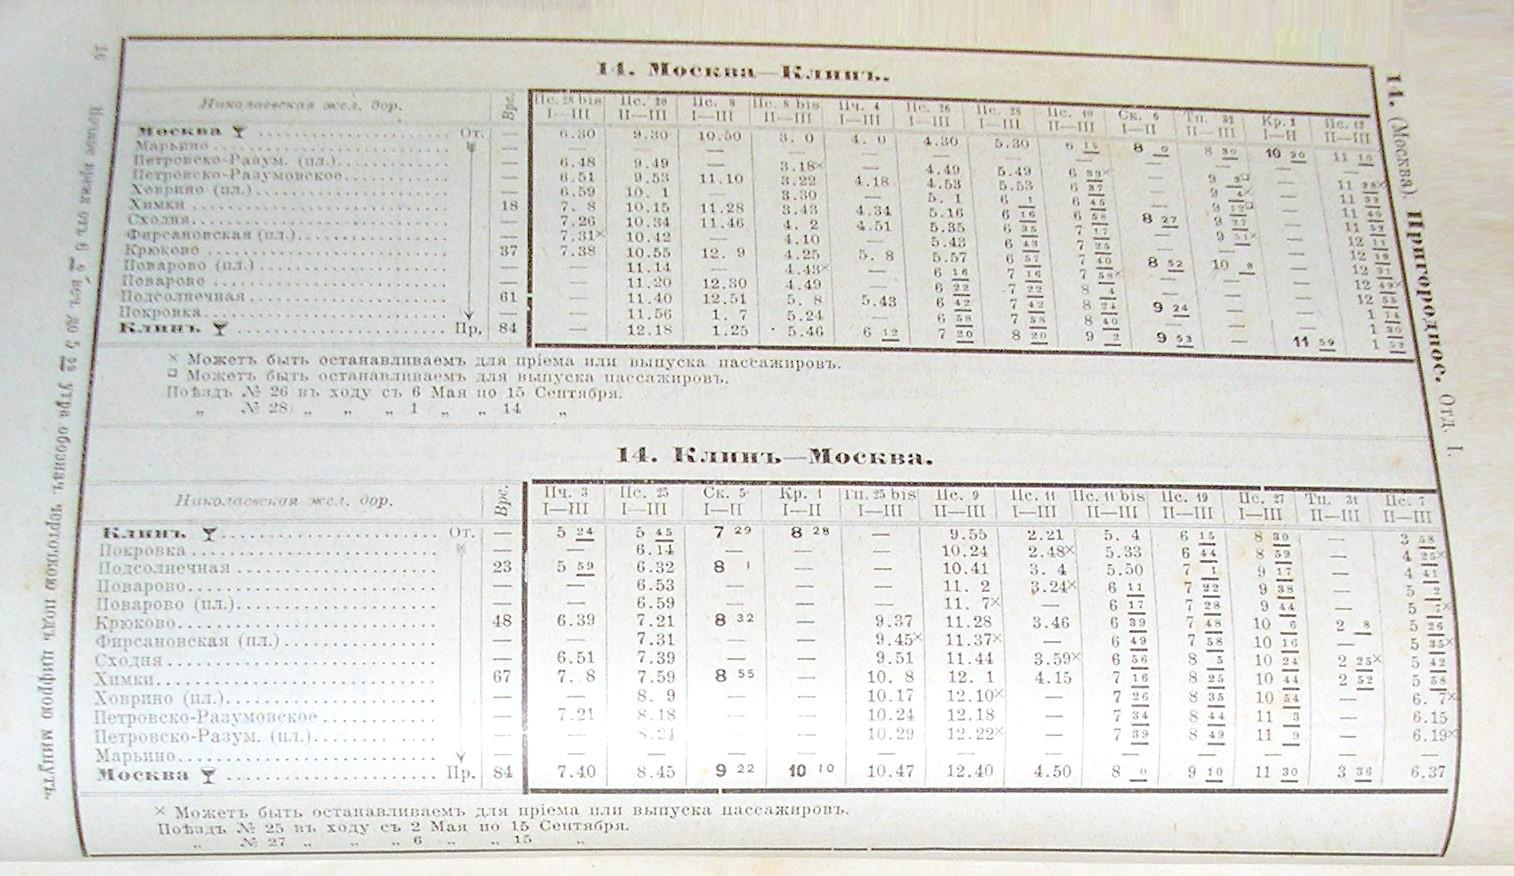 14. Москва—Клинъ.
Николаевская жел. дор. Врс. Пс. 28 bis Пс. 20 Пс. 8 Пс. 8 bis Пч. 4 Пс. 26 Пс. 28 Пс. 10 Ск. 6 Тп. 32 Кр. 2 Пс. 12
I—III II—III I—III II—III I—III I—III I—III II—III I—II II—III I—II II—III
Москва От. — 6.30 9.30 10.50 3. 0 4. 0 4.30 5.30 6 15 8 0 8 30 10 20 11 10
Марьино — — — — — — — — — — — — —
Петровско-Разум. (пл.) — 6.48 9.49 — 3.18× — 4.49 5.49 6 33× — 9 2□ — 11 28×
Петровско-Разумовское — 6.51 9.53 11.10 3.22 4.18 4.53 5.53 6 37 — 9 4× — 11 32
Ховрино (пл.) — 6.59 10. 1 — 3.30 — 5. 1 6 1 6 45 — 9 12□ — 11 40
Химки 18 7. 8 10.15 11.28 3.43 4.34 5.16 6 16 6 58 8 27 9 27 — 11 52
Сходня — 7.26 10.34 11.46 4. 2 4.51 5.35 6 35 7 17 — 9 51× — 12 11
Фирсановская (пл.) — 7.31× 10.42 — 4.10 — 5.43 6 43 7 25 — — — 12 19
Крюково 37 7.38 10.55 12. 9 4.25 5. 8 5.57 6 57 7 40 8 52 10 8 — 12 31
Поварово (пл.) — — 11.14 — 4.43× — 6 16 7 16 7 58× — — — 12 49×
Поварово — — 11.20 12.30 4.49 — 6 22 7 22 8 4 — — — 12 55
Подсолнечная 61 — 11.40 12.51 5. 8 5.43 6 42 7 42 8 24 9 24 — — 1 14
Покровка — — 11.56 1. 7 5.24 — 6 58 7 58 8 40 — — — 1 30
Клинъ Пр. 84 — 12.18 1.25 5.46 6 12 7 20 8 20 9 2 9 53 — 11 59 1 52
× Можетъ быть останавливаемъ для пріема или выпуска пассажировъ.
□ Можетъ быть останавливаемъ для выпуска пассажировъ.
Поѣздъ № 26 въ ходу съ 6 Мая по 15 Сентября.
„ № 28 „ „ „ 1 „ „ 14 „
14. Клинъ—Москва.
Николаевская жел. дор. Врс. Пч. 3 Пс. 25 Ск. 5 Кр. 1 Тп. 25 bis Пс. 9 Пс. 11 Пс. 11 bis Пс. 19 Пс. 27 Тп. 31 Пс. 7
I—III I—III I—II I—II I—III II—III I—III II—III II—III I—III II—III II—III
Клинъ От. — 5 24 5 45 7 29 8 28 — 9.55 2.21 5. 4 6 15 8 30 — 3 58
Покровка — — 6.14 — — — 10.24 2.48× 5.33 6 44 8 59 — 4 25×
Подсолнечная 23 5 59 6.32 8 1 — — 10.41 3. 4 5.50 7 1 9 17 — 4 41
Поварово — — 6.53 — — — 11. 2 3.24× 6 11 7 22 9 38 — 5 2
Поварово (пл.) — — 6.59 — — — 11. 7× — 6 17 7 28 9 44 — 5 7×
Крюково 48 6.39 7.21 8 32 — 9.37 11.28 3.46 6 39 7 48 10 6 2 8 5 26
Фирсановская (пл.) — — 7.31 — — 9.45× 11.37× — 6 49 7 58 10 16 — 5 35×
Сходня — 6.51 7.39 — — 9.51 11.44 3.59× 6 56 8 5 10 24 2 25× 5 42
Химки 67 7. 8 7.59 8 55 — 10. 8 12. 1 4.15 7 16 8 25 10 44 2 52 5 58
Ховрино (пл.) — — 8. 9 — — 10.17 12.10× — 7 26 8 35 10 54 — 6. 7×
Петровско-Разумовское — 7.21 8.18 — — 10.24 12.18 — 7 34 8 44 11 3 — 6.15
Петровско-Разум. (пл.) — — 8.24 — — 10.29 12.22× — 7 39 8 49 11 9 — 6.19×
Марьино — — — — — — — — — — — — —
Москва Пр. 84 7.40 8.45 9 22 10 10 10.47 12.40 4.50 8 0 9 10 11 30 3 36 6.37
× Можетъ быть останавливаемъ для пріема или выпуска пассажировъ.
Поѣздъ № 25 въ ходу съ 2 Мая по 15 Сентября.
„ № 27 „ „ „ 6 „ „ 15 „
14. (Москва). Пригородное. Отд. I.
16 Ночное время отъ 6 0 веч. до 5 59 утра обознач. черточкою подъ цифрою минутъ.